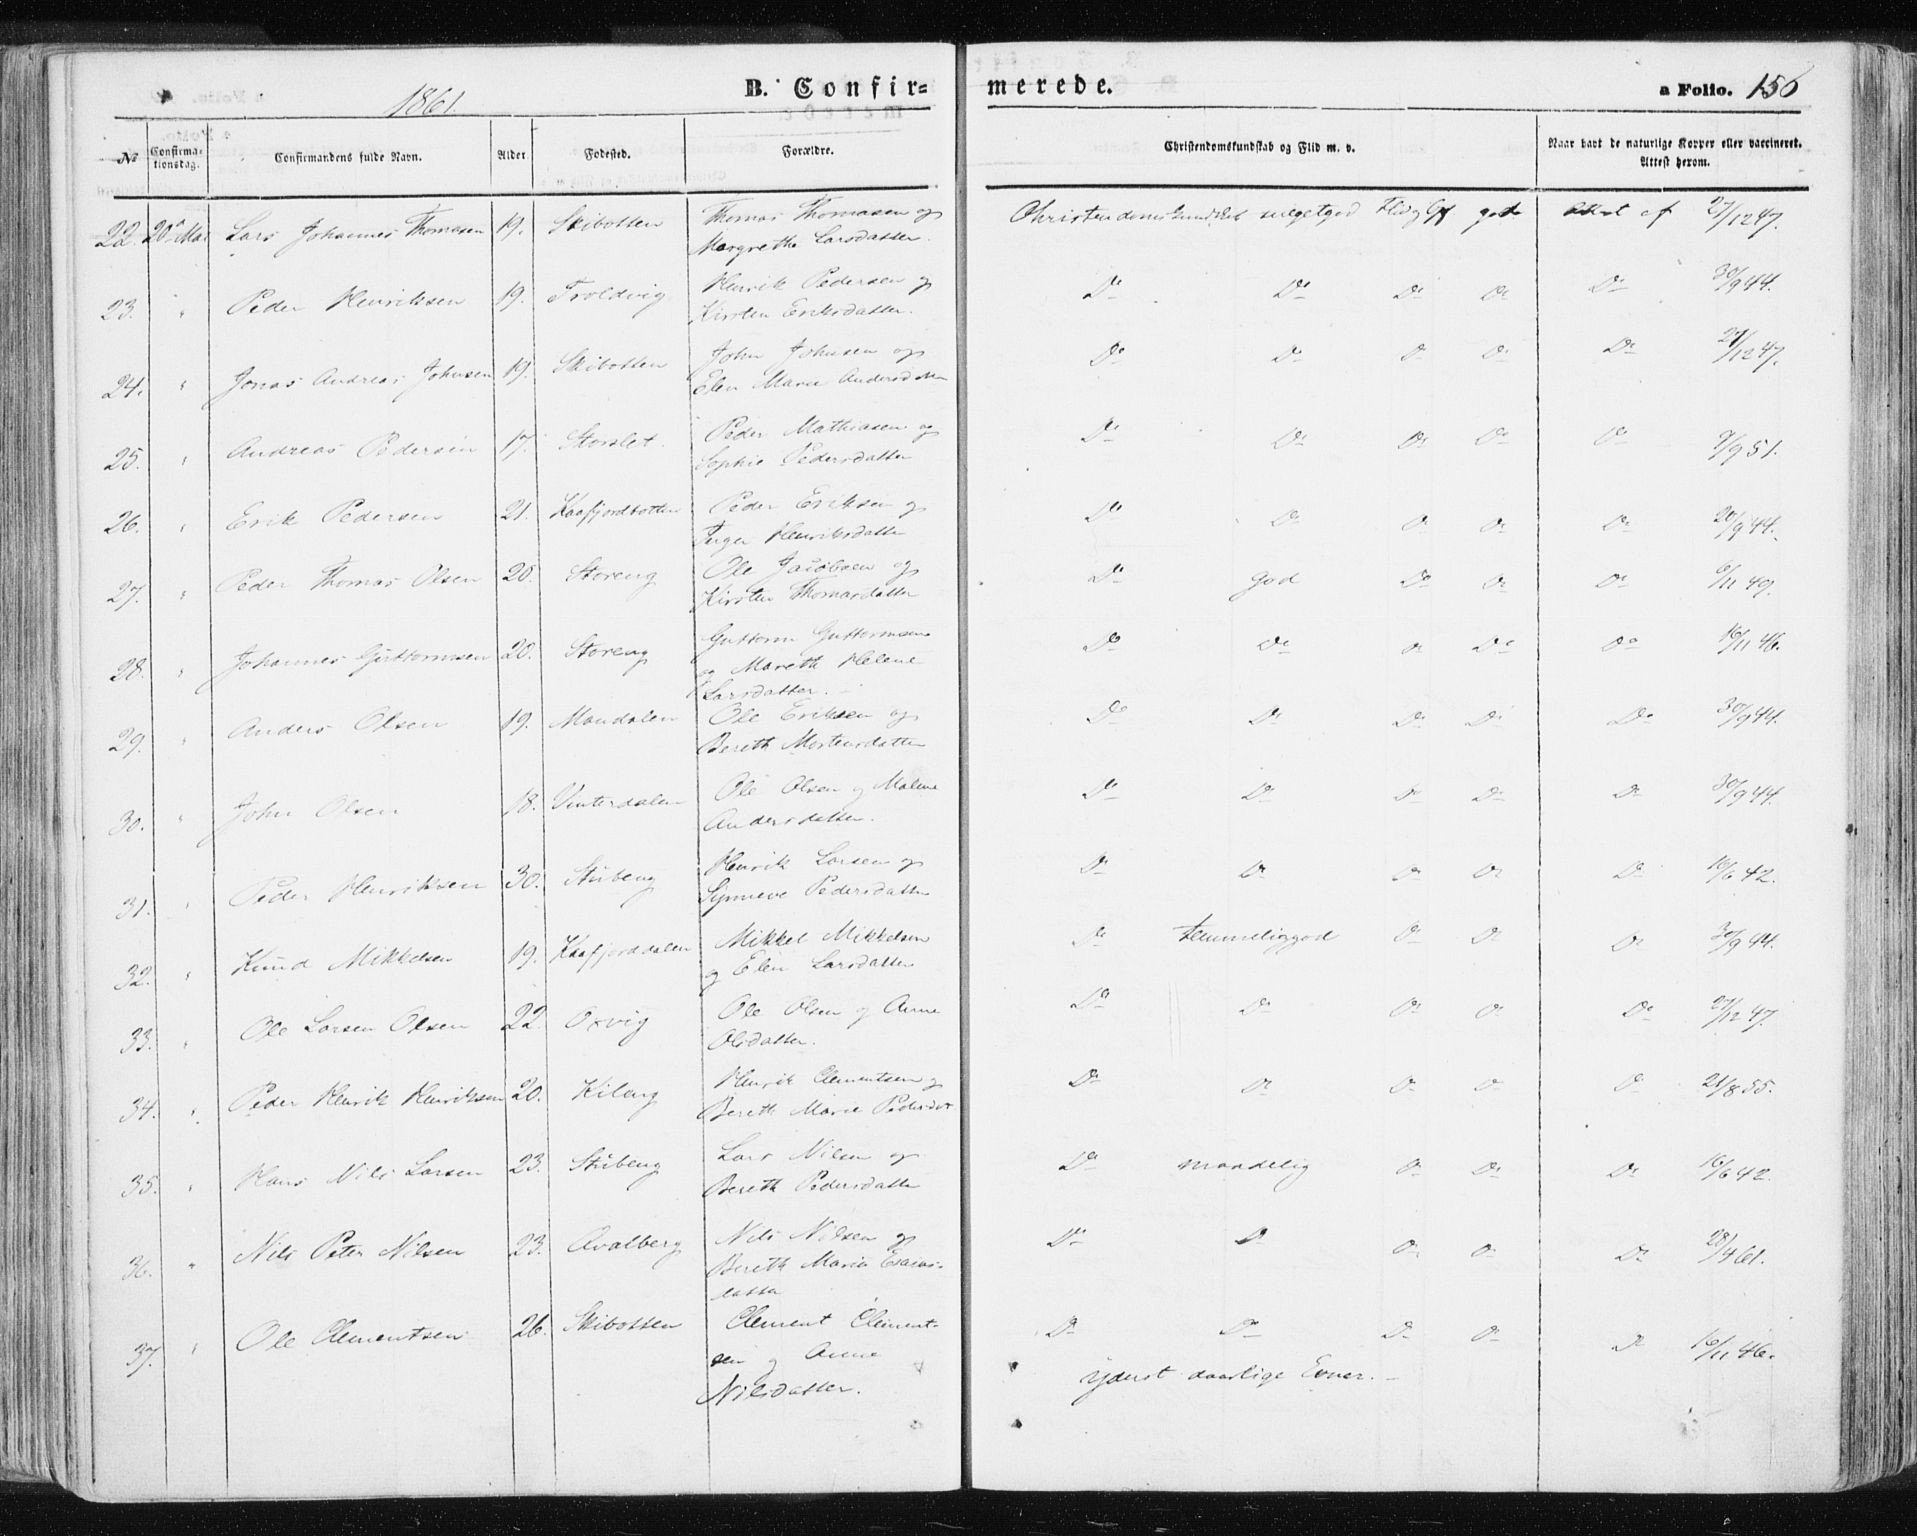 1861.
B. Confir=
merede.
a Folio. 156
No
Confirma-
tionsdag.
Confirmandens fulde Navn.
Alder.
Fødested.
Forældre.
Christendomskundskab og Flid m. v.
Naar havt de naturlige Kopper eller vaccineret.
Attest herom.
22. 20de Mai Lars Johannes Thomasen 19. Skibotten Thomas Thomasen og
Margrethe Larsdatter.
Christendomskundskab meget god Flid god attest af 27/12 47.
23. " Peder Henriksen 19. Troldvig Henrik Pedersen og
Kirsten Eriksdatter.
Do Do Do Do Do 30/9 44.
24. " Jonas Andreas Johnsen 19. Skibotten John Johnsen og
Elen Marie Andersdatter
Do Do Do Do Do 27/12 47.
25. " Andreas Pedersen 17. Storslet Peder Mathiasen og
Sophie Pedersdatter
Do Do Do Do Do /9 51.
26. " Erik Pedersen 21. Kaafjordbotten Peder Eriksen og
Inger Henriksdatter
Do Do Do Do Do /9 44.
27. " Peder Thomas Olsen 20. Storeng Ole Jacobsen og
Kirsten Thomasdatter
Do god Do Do Do 6/11 49.
28. " Johannes Guttormsen 20. Storeng Guttorm Guttormsen
og Mareth Helene
Larsdatter.
Do Do Do Do Do 16/11 46.
29. " Anders Olsen 19. Mandalen Ole Eriksen og
Bereth Mortensdatter
Do Do Do Do Do 30/9 44.
30. " John Olsen 18. Vinterdalen Ole Olsen og Malene
Andersdatter.
Do Do Do Do Do 30/9 44.
31. " Peder Henriksen 30. Stubeng Henrik Larsen og
Synneve Pedersdatter
Do Do Do Do Do 16/6 42.
32. " Knud Mikkelsen 19. Kaafjorddalen Mikkel Mikkelsen
og Elen Larsdatter
Do temmelig god Do Do Do 30/9 44.
33. " Ole Larsen Olsen 22 Orvig Ole Olsen og Anne
Olsdatter.
Do Do Do Do Do 27/12 47.
34. " Peder Henrik Henriksen 20. Kileng Henrik Clementsen og
Bereth Marie Pedersdr
Do Do Do Do Do 21/8 55.
35. " Hans Nils Larsen 23. Stubeng Lars Nilsen og
Bereth Pedersdatter
Do maadelig Do Do Do 16/6 42.
36. " Nils Peter Nilsen 23. Avalberg Nils Nilsen og
Bereth Maria Esaias-
datter
Do Do Do Do Do 28/4 61.
37. " Ole Clementsen 26. Skibotten Clement Clement-
sen og Anne
Nilsdatter.
Do Do Do Do Do 16/11 46.
yderst daarlige Evner.